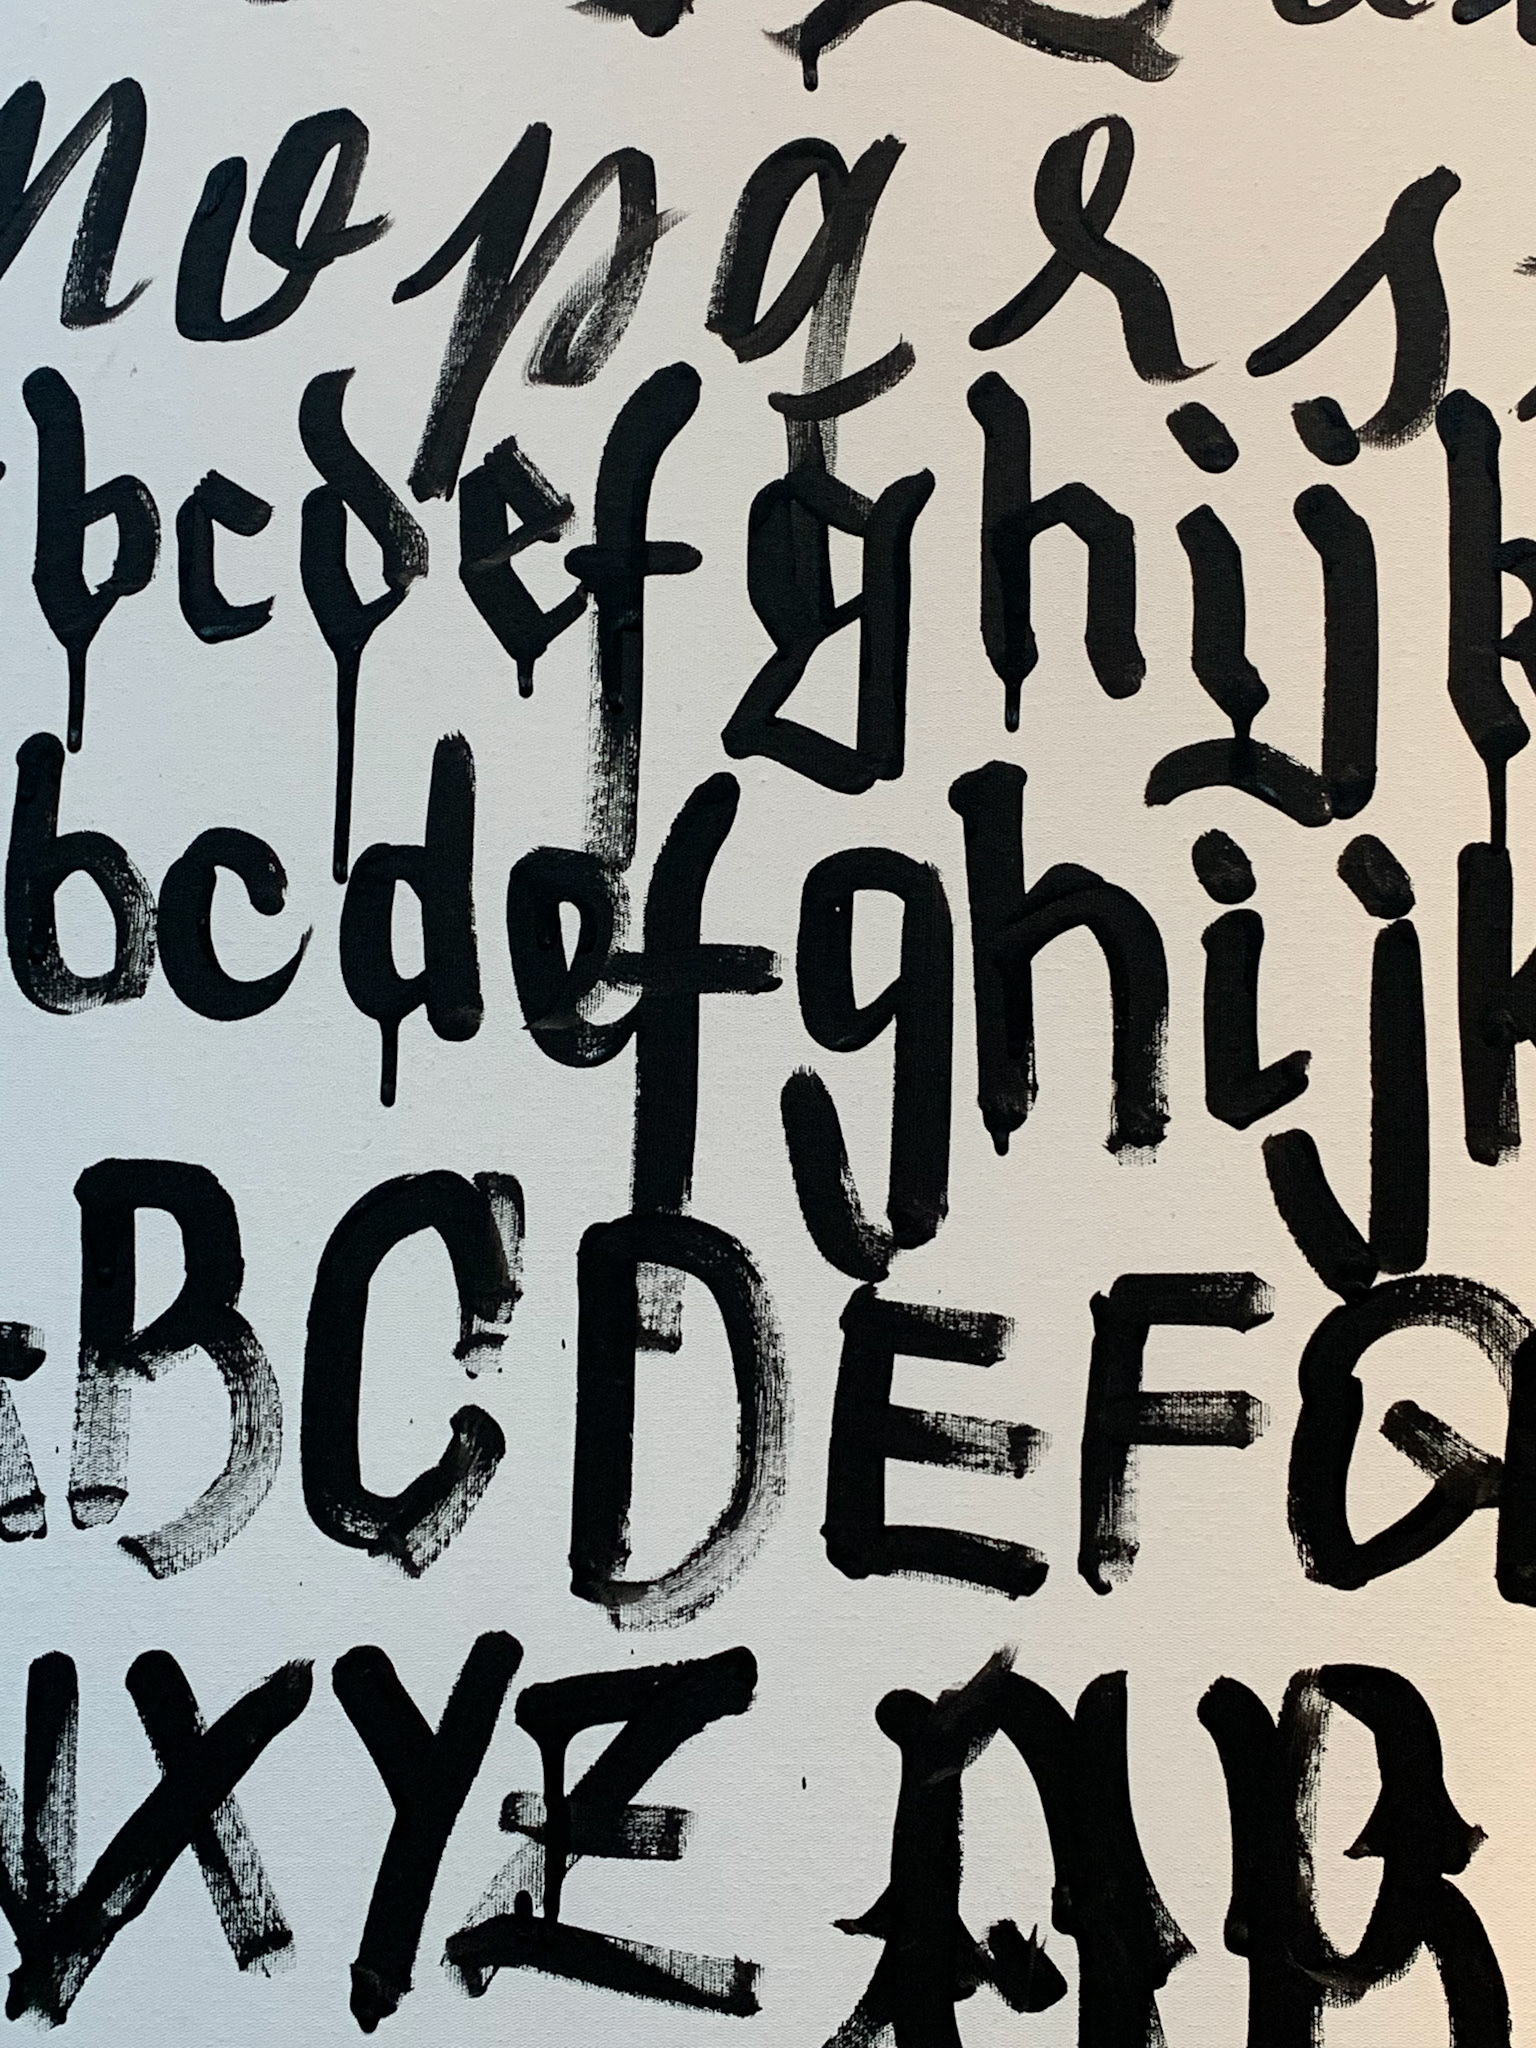 n o p q r s
b c d e f g h i j k
b c d e f g h i j k
A B C D E F G
W X Y Z A B